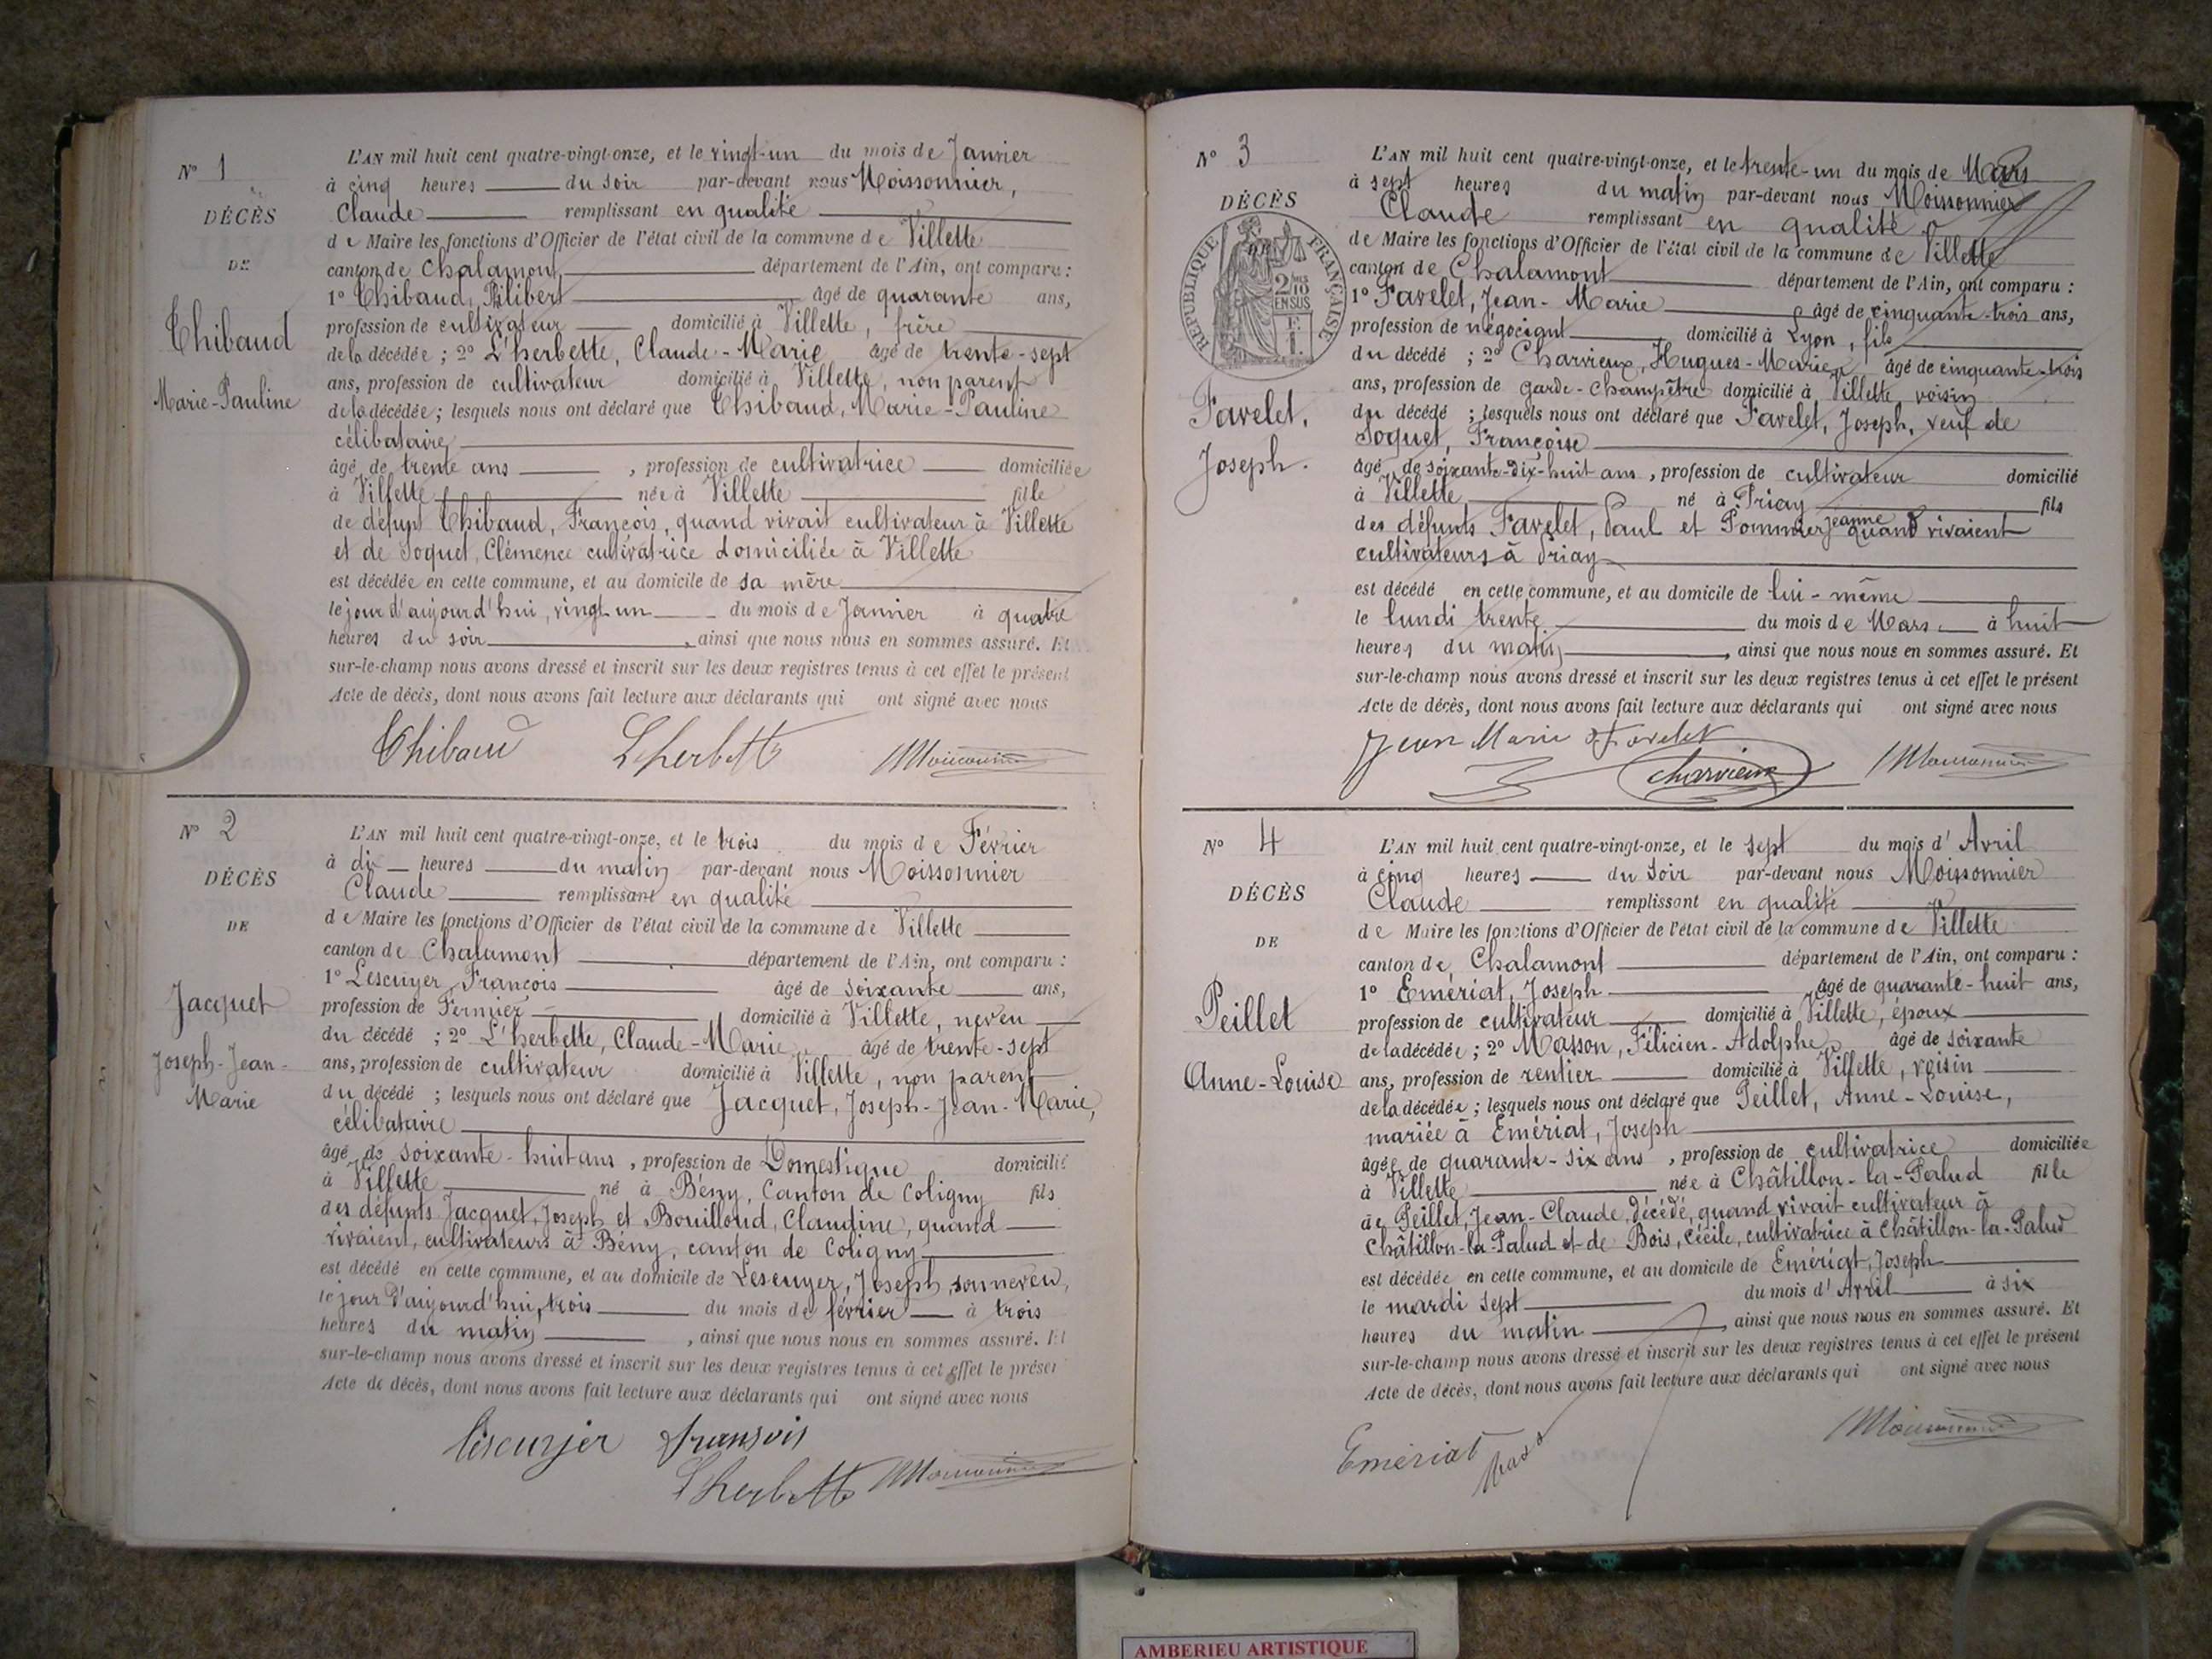 N° 1
DÉCÈS
DE
Thibaud
Marie-Pauline
L'AN mil huit cent quatre-vingt-onze, et le vingt-un du mois de Janvier
à cinq heures du soir par-devant nous Moissonnier,
Claude remplissant en qualité
de Maire les fonctions d'Officier de l'état civil de la commune de Villette
canton de Chalamont, département de l'Ain, ont comparu :
1° Thibaud, Philibert âgé de quarante ans,
profession de cultivateur domicilié à Villette, frère
de la décédée ; 2° L'herbette, Claude-Marie âgé de trente-sept
ans, profession de cultivateur domicilié à Villette, non parent
de la décédée ; lesquels nous ont déclaré que Thibaud, Marie-Pauline
célibataire
âgé de trente ans , profession de cultivatrice domiciliée
à Villette née à Villette fille
de défunt Thibaud, François, quand vivait cultivateur à Villette
et de Soquet, Clémence cultivatrice domiciliée à Villette
est décédée en cette commune, et au domicile de sa mère
le jour d'aujourd'hui, vingt un du mois de Janvier à quatre
heures du soir , ainsi que nous nous en sommes assuré. Et
sur-le-champ nous avons dressé et inscrit sur les deux registres tenus à cet effet le présent
Acte de décès, dont nous avons fait lecture aux déclarants qui ont signé avec nous
Thibaud Lherbette Moissonnier
N° 2
DÉCÈS
DE
Jacquet
Joseph-Jean-
Marie
L'AN mil huit cent quatre-vingt-onze, et le trois du mois de Février
à dix heures du matin par-devant nous Moissonnier
Claude remplissant en qualité
de Maire les fonctions d'Officier de l'état civil de la commune de Villette
canton de Chalamont département de l'Ain, ont comparu :
1° Lescuyer, François âgé de soixante ans,
profession de Fermier domicilié à Villette, neveu
du décédé ; 2° L'herbette, Claude-Marie, âgé de trente-sept
ans, profession de cultivateur domicilié à Villette, non parent
du décédé ; lesquels nous ont déclaré que Jacquet, Joseph-Jean-Marie,
célibataire
âgé de soixante-huit ans , profession de Domestique domicilié
à Villette né à Bény, Canton de Coligny fils
des défunts Jacquet, Joseph et Bouilloud, Claudine, quand
vivaient, cultivateurs à Bény, canton de Coligny
est décédé en cette commune, et au domicile de Lescuyer, Joseph, son neveu,
le jour d'aujourd'hui, trois du mois de février à trois
heures du matin , ainsi que nous nous en sommes assuré. Et
sur-le-champ nous avons dressé et inscrit sur les deux registres tenus à cet effet le présent
Acte de décès, dont nous avons fait lecture aux déclarants qui ont signé avec nous
Lescuyer fransois
Lherbette Moissonnier
N° 3
DÉCÈS
RÉPUBLIQUE FRANÇAISE
2/10 EN SUS
Favelet,
Joseph.
L'AN mil huit cent quatre-vingt-onze, et le trente-un du mois de Mars
à sept heures du matin par-devant nous Moissonnier
Claude remplissant en qualité
de Maire les fonctions d'Officier de l'état civil de la commune de Villette
canton de Chalamont département de l'Ain, ont comparu :
1° Favelet, Jean-Marie âgé de cinquante-trois ans,
profession de négociant domicilié à Lyon, fils
du décédé ; 2° Charvieux, Hugues-Marie, âgé de cinquante-trois
ans, profession de garde-champêtre domicilié à Villette, voisin
du décédé ; lesquels nous ont déclaré que Favelet, Joseph, veuf de
Soquet, Françoise
âgé de soixante-dix-huit ans , profession de cultivateur domicilié
à Villette né à Priay fils
des défunts Favelet, Paul et Pommier, jeanne quand vivaient
cultivateurs à Priay
est décédé en cette commune, et au domicile de lui-même
le lundi trente du mois de Mars à huit
heures du matin , ainsi que nous nous en sommes assuré. Et
sur-le-champ nous avons dressé et inscrit sur les deux registres tenus à cet effet le présent
Acte de décès, dont nous avons fait lecture aux déclarants qui ont signé avec nous
Jean Marie Favelet
Charvieux Moissonnier
N° 4
DÉCÈS
DE
Peillet
Anne-Louise
L'AN mil huit cent quatre-vingt-onze, et le sept du mois d'Avril
à cinq heures du soir par-devant nous Moissonnier
Claude remplissant en qualité
de Maire les fonctions d'Officier de l'état civil de la commune de Villette
canton de Chalamont département de l'Ain, ont comparu :
1° Emériat, Joseph âgé de quarante-huit ans,
profession de cultivateur domicilié à Villette, époux
de la décédée ; 2° Masson, Félicien-Adolphe, âgé de soixante
ans, profession de rentier domicilié à Villette, voisin
de la décédée ; lesquels nous ont déclaré que Peillet, Anne-Louise,
mariée à Emériat, Joseph
âgée de quarante-six ans , profession de cultivatrice domiciliée
à Villette née à Châtillon-la-Palud fille
de Peillet, Jean-Claude, décédé, quand vivait cultivateur à
Châtillon-la-Palud et de Bois, Cécile, cultivatrice à Châtillon-la-Palud
est décédée en cette commune, et au domicile de Emériat, Joseph
le mardi sept du mois d'Avril à six
heures du matin , ainsi que nous nous en sommes assuré. Et
sur-le-champ nous avons dressé et inscrit sur les deux registres tenus à cet effet le présent
Acte de décès, dont nous avons fait lecture aux déclarants qui ont signé avec nous
Emériat Moissonnier
AMBERIEU ARTISTIQUE